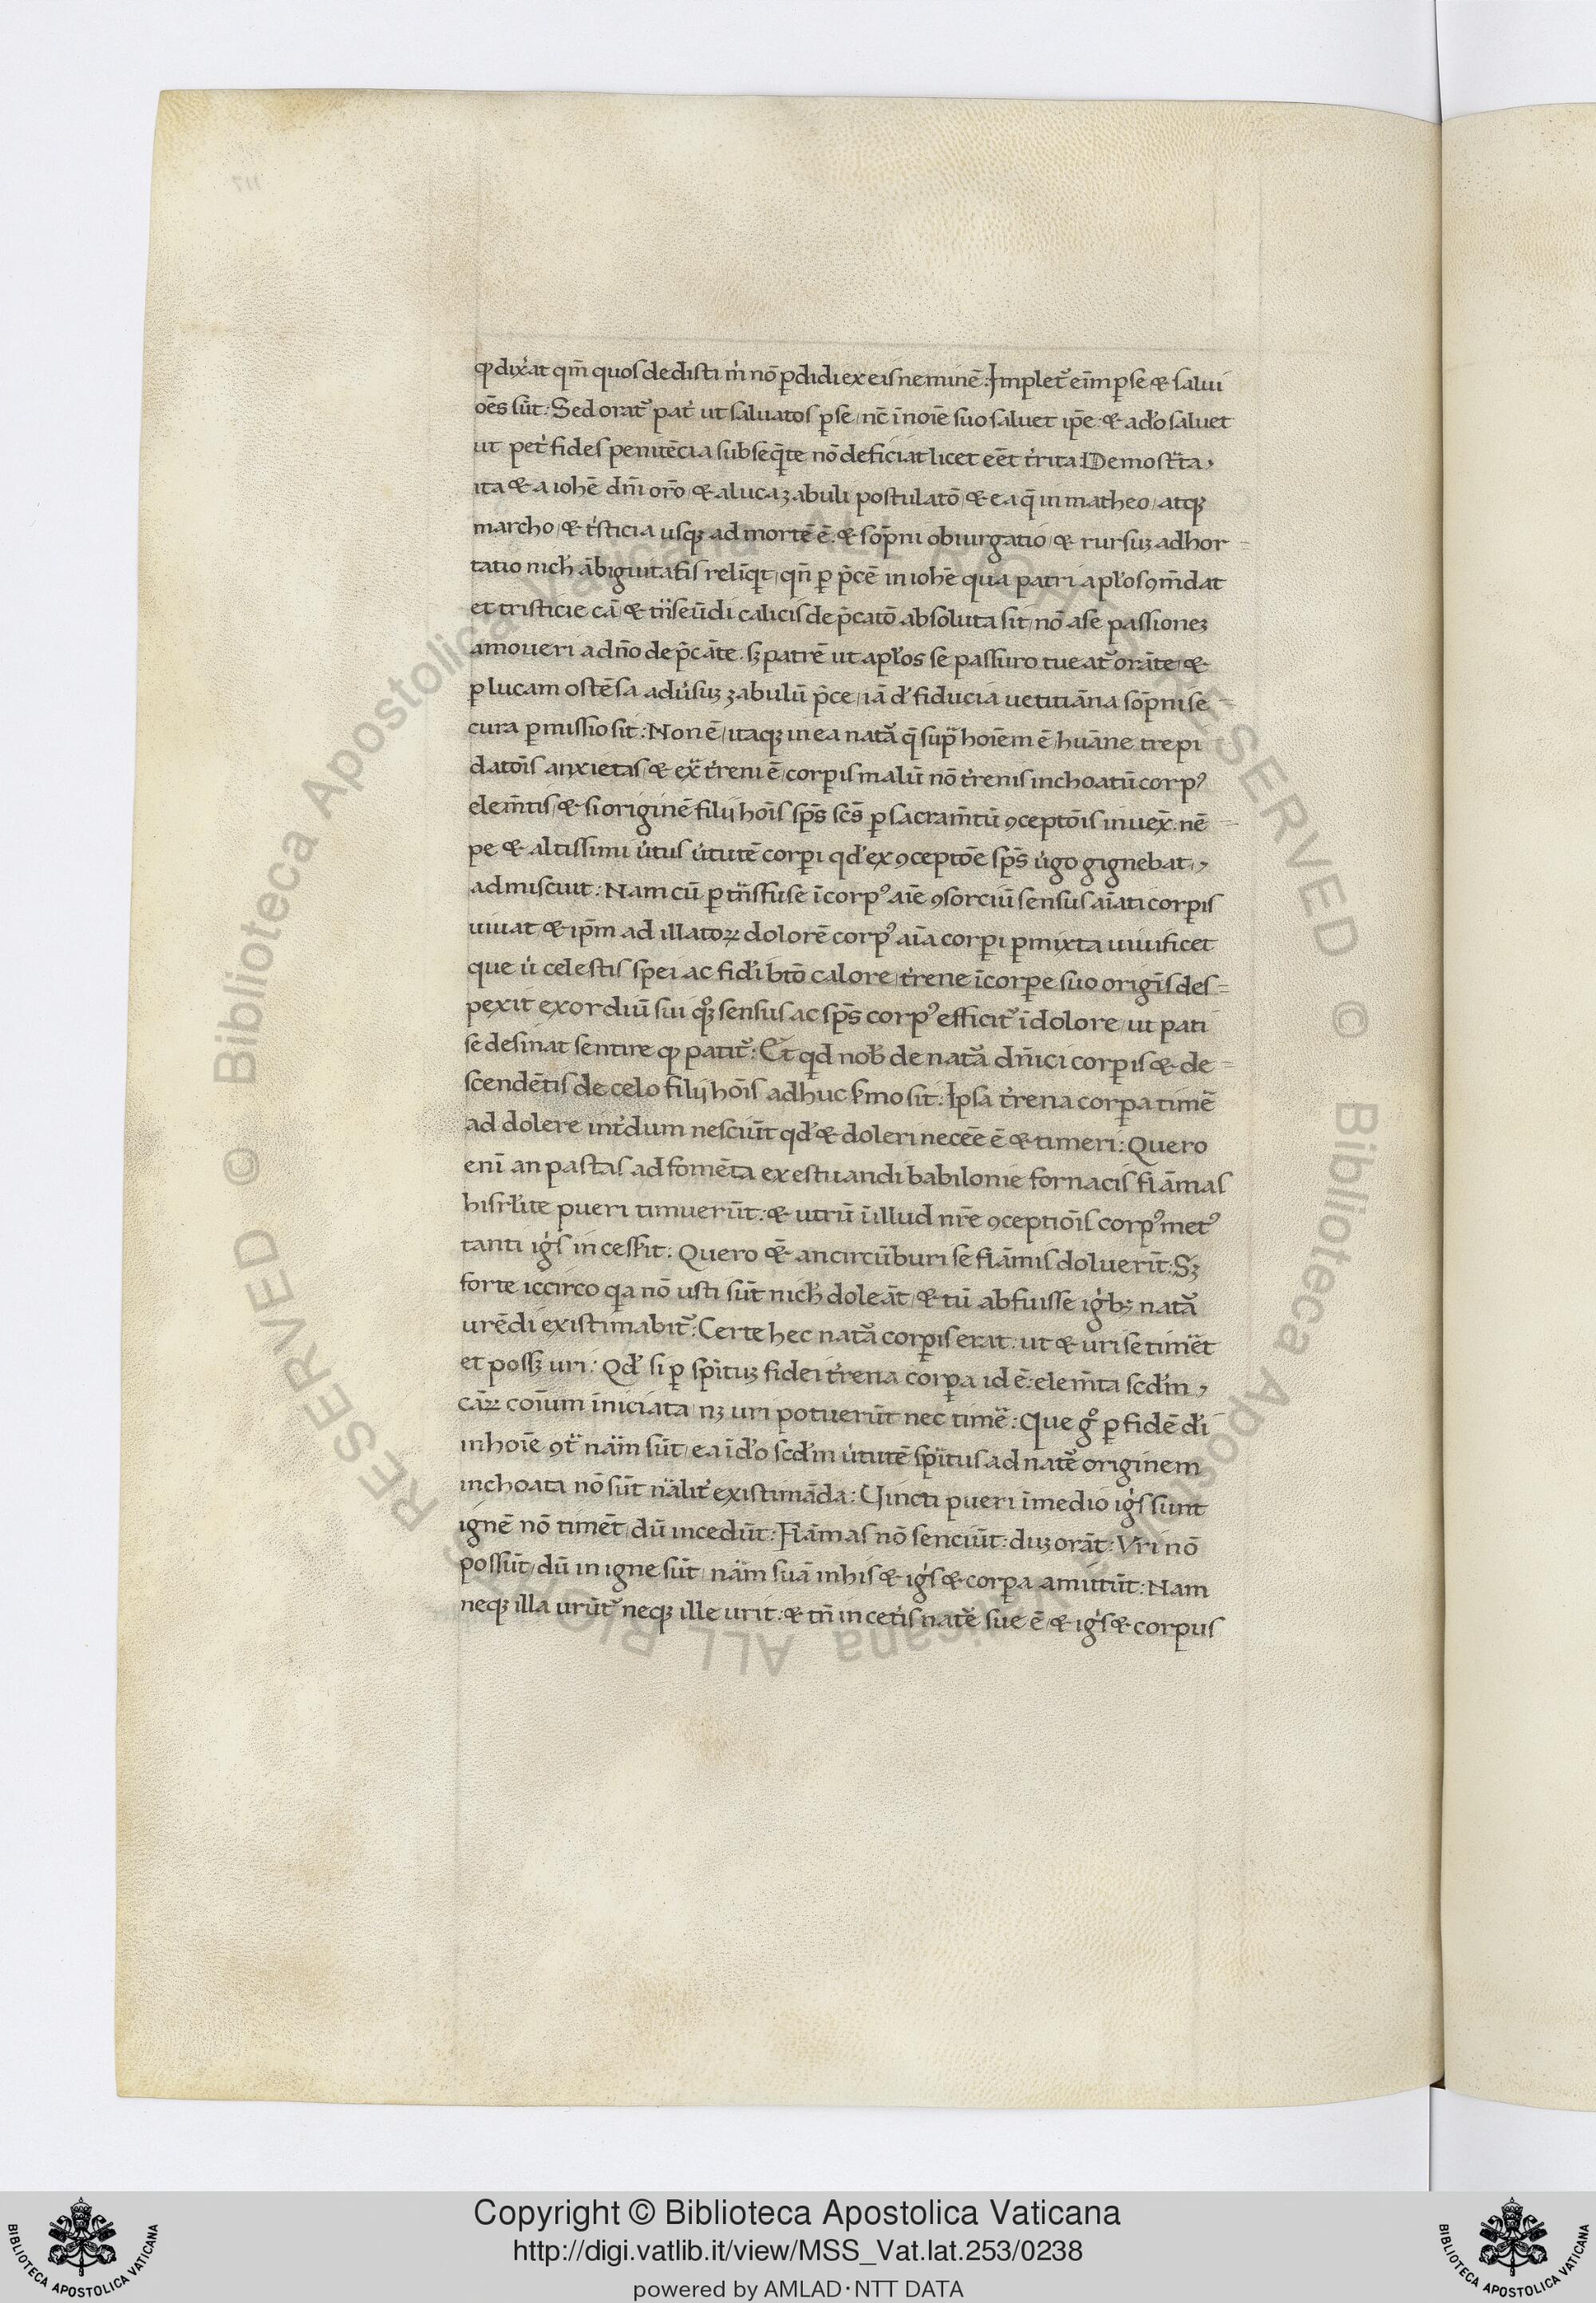 ꝙ dix̓at qm̄ quos dedisti m̓ nō ꝑdidi ex eis neminē: Implet᷑ eīm ꝑ se & salui
oēs sūt: Sed orat᷑ pat̓ ut saluatos ꝑ se nc̄ ī noīe suo saluet ip̄e: & ad̓o saluet
ut pet̓ fides penitēcia subseq̄te nō deficiat licet eēt t̓rita: Demost̄ta,
ita & a iohē dn̄i oro̅ & a luca zabuli postulatō & ea q̄ in matheo atqꝫ
marcho & t̓sticia usqꝫ ad mortē ē & sop̄ni obiurgatio & rursuꝫ adhor
tatio nich̓ ābiguitatis reliq̄t qn̄ ꝑ p̄cē in iohē qua patri apl̓os ꝯm̄dat
et tristicie cā & tn̄seūdi calicis dep̄catō absoluta sit nō a se passioneꝫ
amoueri a dn̄o dep̄cāte. sꝫ patrē ut apl̓os se passuro tueat᷑ orāte &
ꝑ lucam ostēsa adu̓suꝫ zabulū p̄ce iā d̓ fiducia uetitiāna sōpni se
cura ꝑmissio sit: Non ē itaqꝫ in ea nat᷑a q̄ sup̄ hoīem ē huāne trepi
datōis anxietas & ex̄ t̓reni ē corꝑis malū nō t̓renis inchoatū corpꝰ
elem̄tis & si originē filij hoīs sp̄s sc̄s ꝑ sacram̄tū ꝯceptōis inuex̄. nē
pe & altissimi u̓tus u̓tutē corꝑi qd̓ ex ꝯceptōe sp̄s u̓go gignebat,
admiscuit: Nam cū ꝑ tn̄sfuse ī corpꝰ aīe ꝯsorciū sensus aīati corꝑis
uiuat & ip̄m ad illatoꝝ dolorē corpꝰ aīa corꝑi ꝑmixta uiuificet
que u̓ celestis spei ac fid̓i btō calore t̓rene ī corꝑe suo origīs des
pexit exordiū sui qͦꝫ sensus ac sp̄s corpꝰ efficit᷑ ī dolore ut pati
se desinat sentire ꝙ patit᷑: Et qd nob̓ de nat᷑a dn̄ici corꝑis & de
scendētis de celo filij hoīs adhuc s̓mo sit: Ipsa t̓rena corꝑa timē
ad dolere int̓dum nesciūt qd̓ & doleri neceē ē & timeri: Quero
enī an pastas ad fomēta exestuandi babilonie fornacis flāmas
hisrl̓ite pueri timuerūt: & utrū ī illud nr̄e ꝯceptiōis corpꝰ metꝰ
tanti ig̓s incessit: Quero &̄ an circūburi se flāmis doluerīt: Sꝫ
forte iccirco qa nō usti sūt nich̓ doleāt & tū abfuisse ig̓bꝫ nat᷑ā
urēdi existimabit᷑: Certe hec nat᷑a corꝑis erat: ut & uri se tim̄et
et possꝫ uri: Qd̓ si ꝑ sp̄ituꝫ fidei t̓rena corꝑa id ē: elem̄ta scd̓m,
cāꝝ coīum īniciata nꝫ uri potuerūt nec timē: Que gͦ ꝑ fidē d̓i
in hoīe ꝯt̄ nām sūt ea īd̓o scd̓m u̓tutē sp̄itus ad nat᷑e originem
inchoata nō sūt nālit̓ existimāda: Uincti pueri ī medio ig̓s sunt
ignē nō timēt dū incedūt: Flāmas nō senciūt: duꝫ orāt: Uri nō
possūt dū in igne sūt nām suā in his & ig̓s & corꝑa amittūt: Nam
neqꝫ illa urūt᷑ neqꝫ ille urit: & tn̄ in cet̓is nat᷑e sue ē & ig̓s & corpus
Copyright © Biblioteca Apostolica Vaticana
http://digi.vatlib.it/view/MSS_Vat.lat.253/0238
powered by AMLAD·NTT DATA